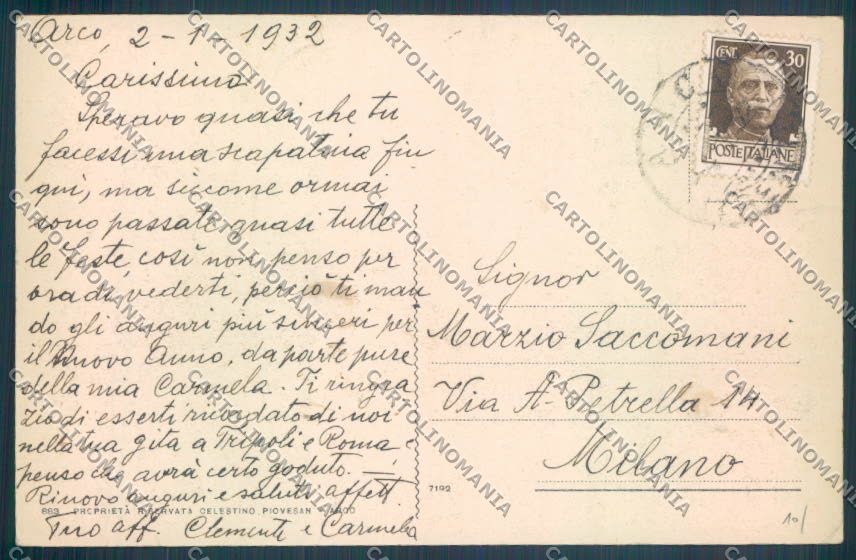 Arco, 2-1-1932
Carissimo
Speravo quasi che tu
facessi una scapatina fin
quì, ma siccome ormai
sono passate quasi tutte
le feste, così non penso per
ora di vederti, perciò ti man
do gli auguri più sinceri per
il Nuovo Anno, da parte pure
della mia Carmela. Ti ringra
zio di esserti ricordato di noi
nella tua gita a Tripoli e Roma e
penso che avrà certo goduto. —
Rinovo auguri e saluti affett.
663 - PROPRIETÀ RISERVATA CELESTINO PIOVESAN - ARCO
Tuo aff. Clemente e Carmela
CENT. 30
POSTE ITALIANE
Signor
Marzio Saccomani
Via A. Petrella 14
Milano
7192
10/
CARTOLINOMANIA